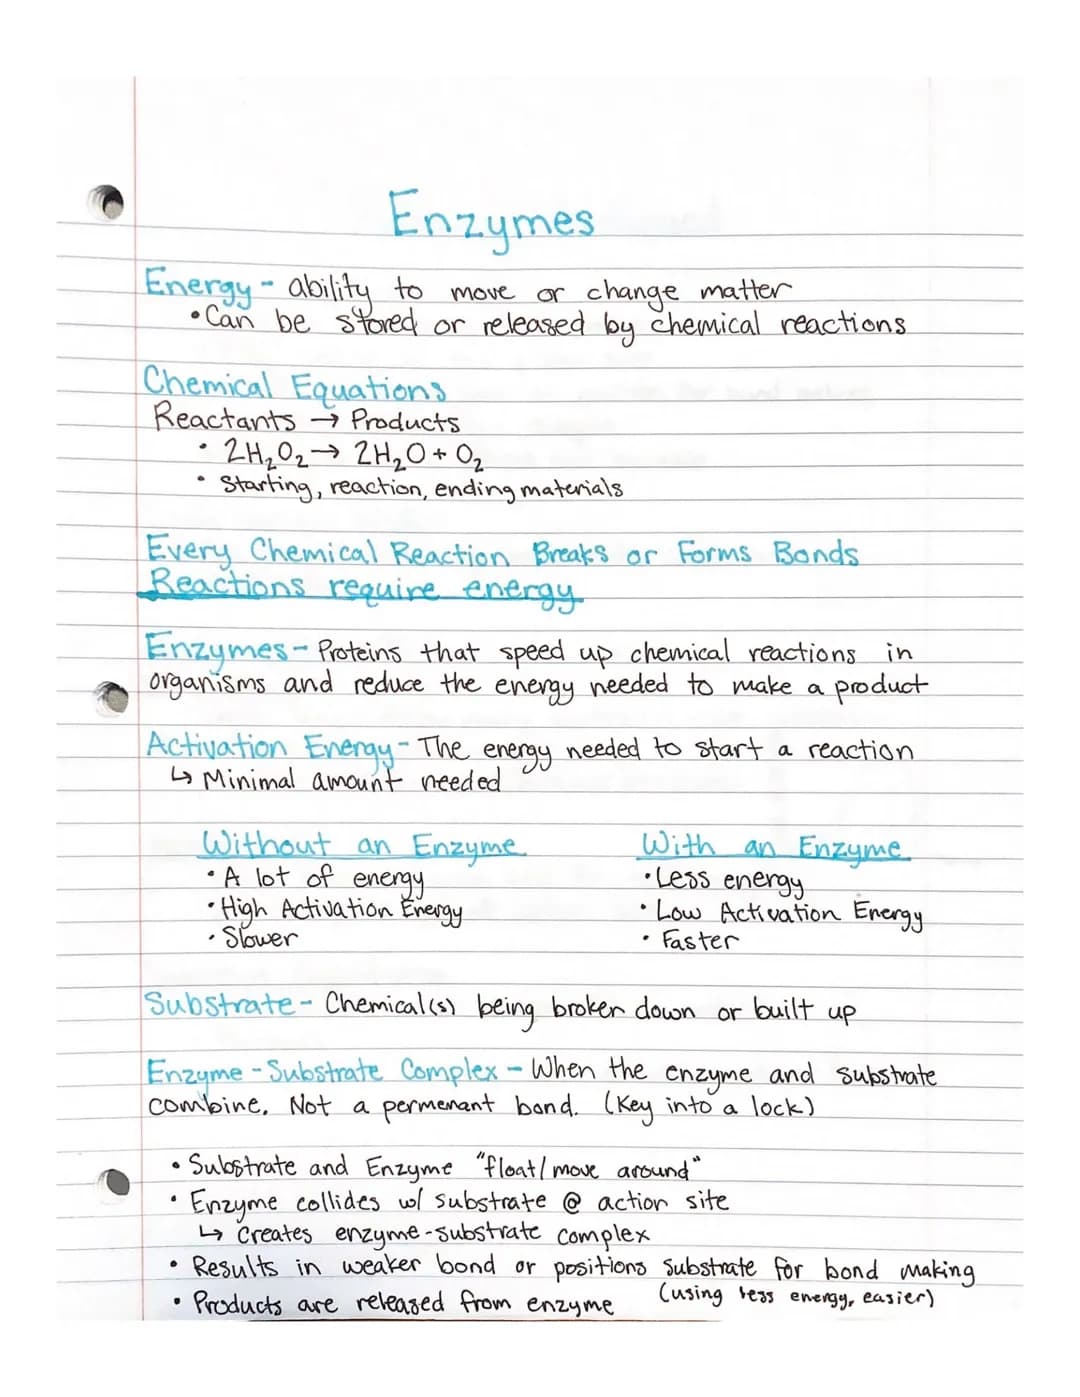 Enzymes
Energy - ability to move or change matter
• Can be stored or released by chemical reactions
Chemical Equations
Reactants → Products
• 2H₂O₂ → 2H₂O + O₂
• Starting, reaction, ending materials
Every Chemical Reaction Breaks or Forms Bonds
Reactions require energy
Enzymes - Proteins that speed up chemical reactions in
organisms and reduce the energy needed to make a product
Activation Energy - The energy needed to start a reaction
↳ Minimal amount needed
Without an Enzyme
• A lot of energy
• High Activation Energy
• Slower
With an Enzyme
• Less energy
• Low Activation Energy
• Faster
Substrate - Chemical(s) being broken down or built up
Enzyme - Substrate Complex - When the enzyme and substrate
combine. Not a permenant bond. (Key into a lock)
• Substrate and Enzyme "float/move around"
• Enzyme collides w/ substrate @ action site
↳ Creates enzyme-substrate complex
• Results in weaker bond or positions Substrate for bond making
(using less energy, easier)
• Products are released from enzyme